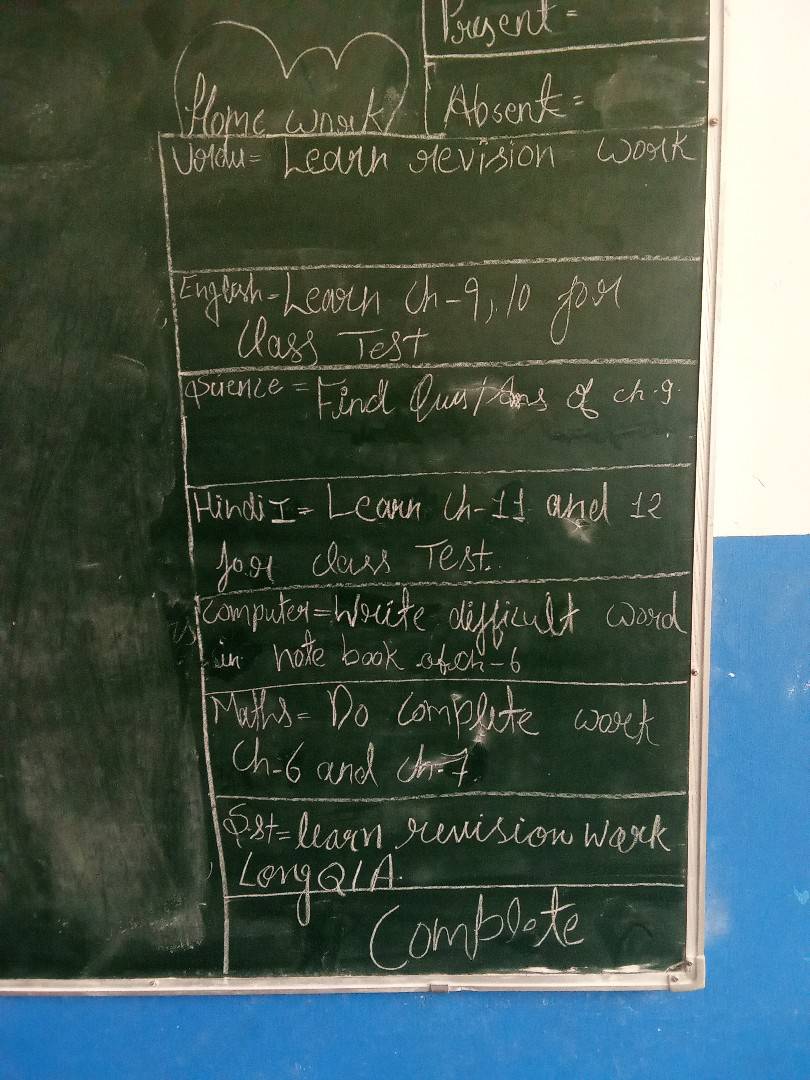 Present =
Absent =
Home work
Uordu = Learn revision work
English = Learn Ch-9, 10 for
Class Test
Science = Find Ques/Ans of ch.9.
Hindi I = Learn Ch-11 and 12
for class Test.
Computer = Write difficult word
in note book of Ch-6
Maths = Do complete work
Ch-6 and ch-7.
S.st = learn revision work
Long Q/A.
Complete